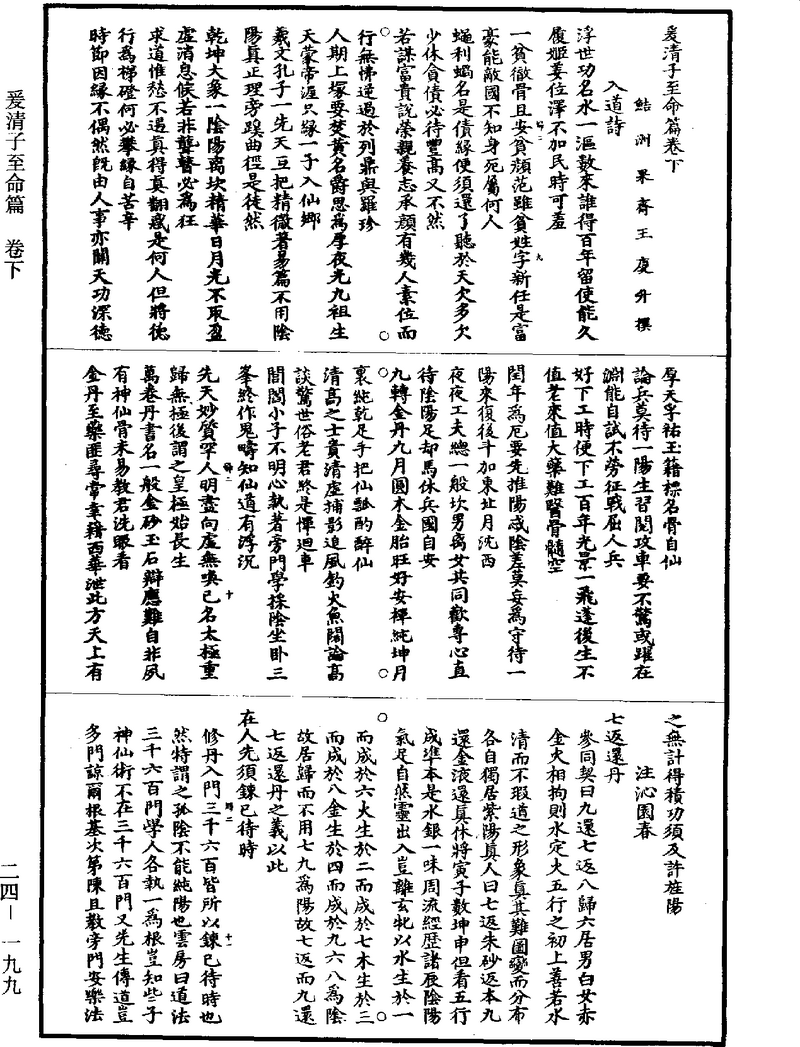 爰清子至命篇卷下
鮚洲果齋王慶升撰
入道詩
浮世功名水一漚數來誰得百年留使能久
履姬姜位澤不加民時可羞
一貧徹骨且安貧顏范雖貧姓字新任是富
豪能敵國不知身死屬何人
蠅利蝸名是債緣便須還了聽於天欠多欠
少休貪債必待豐高又不然
若謀富貴說榮親養志承顏有幾人素位而
行無怫逆過於列鼎與羅珍
人期上塚要焚黃名爵思爲厚夜光九祖生
天蒙帝渥只緣一子入仙鄉
羲文孔子一先天豆把精微著易篇不用陰
陽真正理旁蹊曲徑是徒然
乾坤大象一陰陽离坎精華日月光不取盈
虛消息候若非聾瞽必爲狂
求道惟愁不遇真得真翻惑是何人但將德
行爲梯磴何必攀緣自苦辛
時節因緣不偶然旣由人事亦關天功深德
厚天孚祐玉籍標名骨自仙
論兵莫待一陽生習閱攻車要不驚或躍在
淵能自試不勞征戰屈人兵
好下工時便下工百年光景一飛蓬後生不
值老來值大藥難醫骨髓空
閏年爲厄要先推陽忒陰差莫妄爲守待一
陽來復後斗加東北月沈西
夜夜工夫總一般坎男离女共同歡專心直
待陰陽足却馬休兵國自安
九轉金丹九月圓木金胎旺好安禪純坤月
裏純乾足手把仙瓢酌醉仙
清高之士貴清虛捕影追風釣火魚闊論高
談驚世俗老君終是憚迴車
閭閻小子不明心執著旁門學採陰坐卧三
峯終作鬼疇知仙道有浮沉
先天妙質罕人明盡向虛無喚已名太極重
歸無極後謂之皇極始長生
萬卷丹書名一般金砂玉石辯應難自非夙
有神仙骨未易教君洗眼看
金丹至藥匪尋常韋籍西華泄此方天上有
之無計得積功須及許旌陽
注沁園春
七返還丹
參同契曰九還七返八歸六居男白女赤
金火相拘則水定火五行之初上善若水
清而不瑕道之形象真其難圖變而分布
各自獨居紫陽真人曰七返朱砂返本九
還金液還真休將寅子數坤申但看五行
成準本是水銀一味周流經歷諸辰陰陽
氣足自然靈出入豈離玄牝以水生於一
而成於六火生於二而成於七木生於三
而成於八金生於四而成於九六八爲陰
故居歸而不用七九爲陽故七返而九還
七返還丹之義以此
在人先須鍊已待時
修丹入門三千六百皆所以鍊已待時也
然特謂之孤陰不能純陽也雲房曰道法
三千六百門學人各執一爲根豈知些子
神仙術不在三千六百門又先生傳道豈
多門諒爾根基次第陳且數旁門安樂法
爰清子至命篇 卷下
二四—一九九